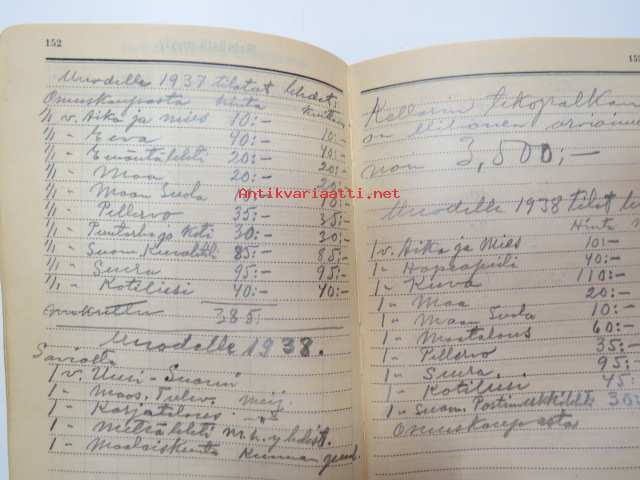 152
Vuodelle 1937 tilatut lehdet:
Osuuskaupasta hinta
1/1 v. Aika ja mies 10:- 10:-
1/1 - Eeva 40:- 40:-
1/1 - Emäntälehti 20:- 20:-
1/1 - Maa 20:- 20:-
1/1 - Maan Suola 10:-
1/1 - Pellervo 35:- 35:-
1/1 - Puutarha ja Koti 30:- 30:-
1/1 - Suom. Kuvalehti 85:- 85:-
1/1 - Seura 95:- 95:-
1/1 - Kotiliesi 40:- 40:-
385:-
Vuodelle 1938.
1 v. Uusi-Suomi
1 - Maas. Tulev.
1 - Karjatalous
1 - Metsälehti
1 - Maalaiskunta
Antikvariaatti.net
153
3,500;-
Vuodelle 1938 tilat
Hinta
1 v. Aika ja Mies 10:-
1 - Hopeapeili 40:-
1 - Kuva 110:-
1 - Maa 20:-
1 - Maan Suola 10:-
1 - Maatalous 60:-
1 - Pellervo 35:-
1 - Seura 95:-
1 - Kotiliesi 45:-
1 - Suom. Postimerkkilehti 30:-
Osuuskaupasta